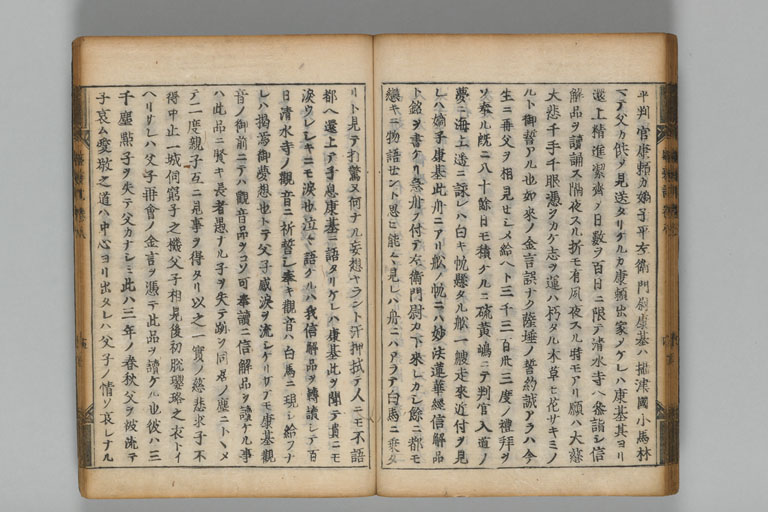 平判官康頼カ嫡子平左衛門尉康基ハ摂津國小馬林
マテ父カ供ヲ見送タリケルカ康頼出家ノケレハ康基其ヨリ
還上精進潔齋ノ日數ヲ百日ニ限テ清水寺ヘ参詣シ信
解品ヲ讀誦ス隔夜スル折モ有夙夜スル時モアリ願ハ大慈
大悲千手千眼憑ヲカケ志ヲ運ハ朽タル木草モ花サキミノ
ルト御誓アル也如來ノ金言誤ナク薩埵ノ誓約誠アラハ今
生ニ再父ヲ相見セシメ給ヘト三千三百卅三度ノ禮拜ヲ
ソ奉ル既ニ八十餘日モ積ケルニ硫黄嶋ニテ判官入道ノ
夢ニ海上遥ニ詠レハ白キ帆懸タル舩一艘走來近付ヲ見
レハ嫡子康基此舟ニアリ舩ノ帆ニハ妙法蓮華經信解品
ト銘ヲ書ケリ急舟ヲ付テ左衛門尉カ下來レカシ餘ニ都モ
戀キニ物語セント思ヒ能々見レハ舟ニハアラテ白馬ニ乗タ
リト見テ打驚ヌ何ナル妄想ヤラント汗押拭テ人ニモ不語
都ヘ還上テ子息康基ニ語タリケレハ康基此ヲ聞テ貴ニモ
涙ウレシキニモ涙也泣々語ケルハ我信解品ヲ轉讀シテ百
日清水寺ノ觀音ニ祈誓シ奉キ觀音ハ白馬ニ現シ給フナ
レハ掲焉御夢想也トテ父子感涙ヲ流シケリサテモ康基觀
音ノ御前ニテハ觀音品ヲコソ可奉讀ニ信解品ヲ讀ケル事
ハ此品ニ賢キ長者愚ナル子ヲ失テ跡ヲ同居ノ塵ニトヽメ
テ二度親子互ニ見事ヲ得タリ以之一實ノ慈悲求子不
得中止一城伺窮子之機父子相見後初脱瓔珞之衣トイ
ヘリサレハ父子再會ノ金言ヲ憑テ此品ヲ讀ケル也彼ハ三
千塵點子ヲ失テ父カナシミ此ハ三年ノ春秋父ヲ被流テ
子哀ム愛敬之道ハ中心ヨリ出タレハ父子ノ情ソ哀レナル